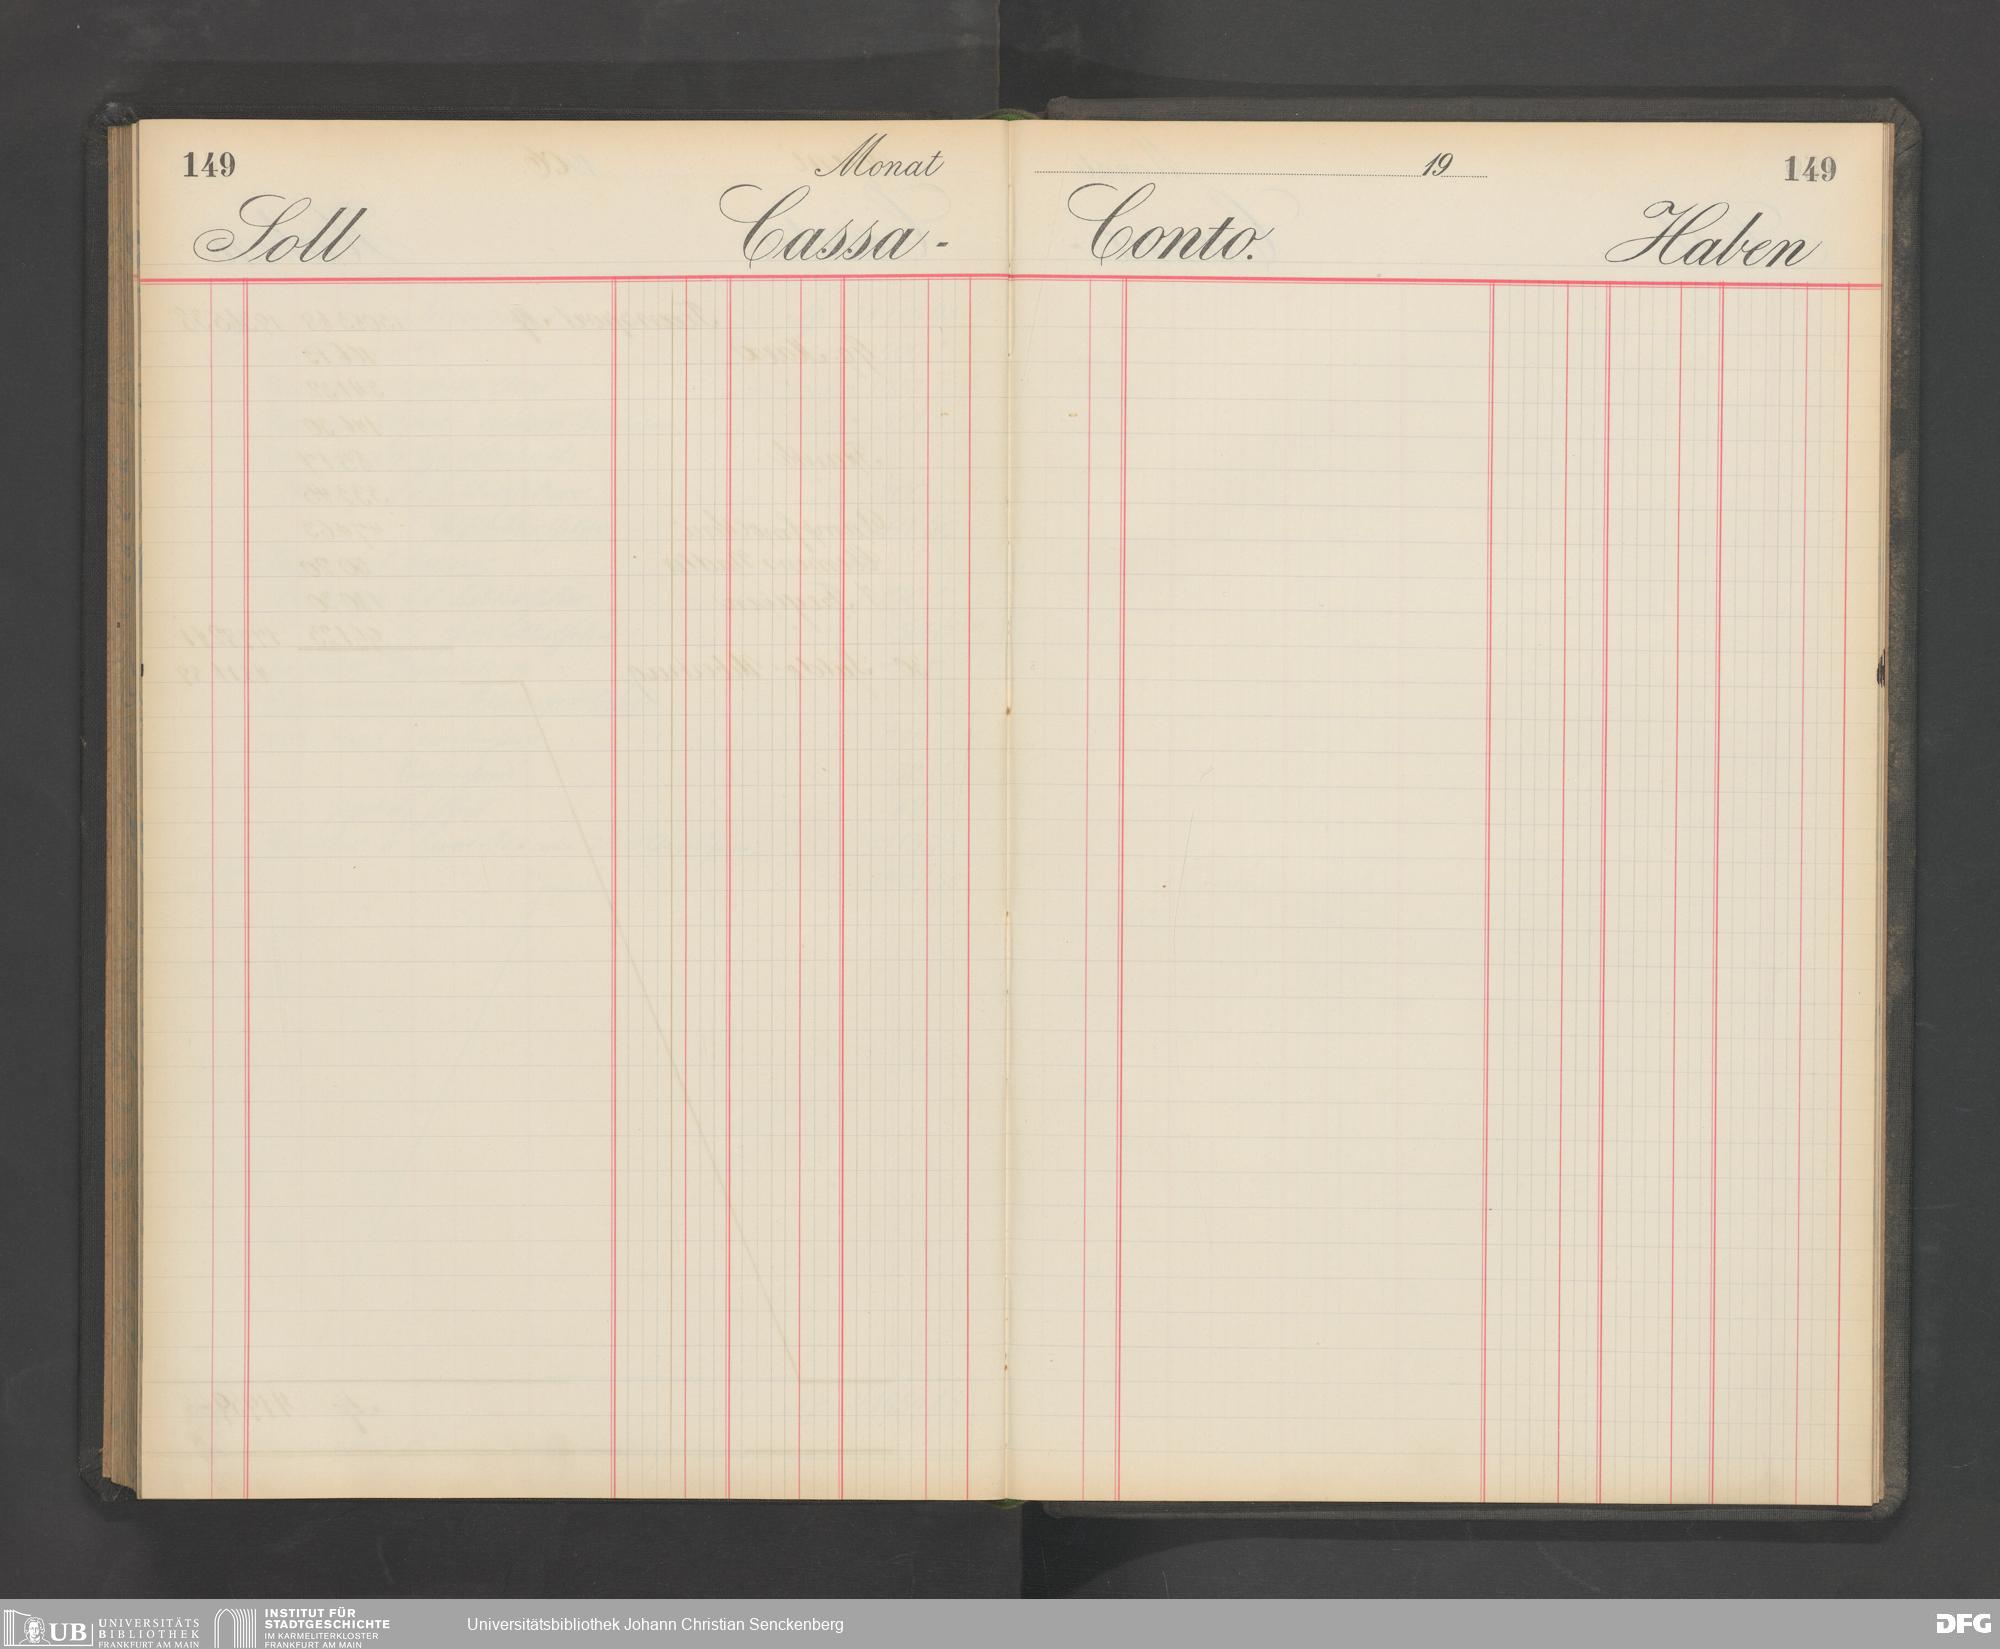 149 Monat 19 149
Soll Cassa - Conto. Haben
UB UNIVERSITÄTS BIBLIOTHEK FRANKFURT AM MAIN
INSTITUT FÜR STADTGESCHICHTE IM KARMELITERKLOSTER FRANKFURT AM MAIN
Universitätsbibliothek Johann Christian Senckenberg
DFG